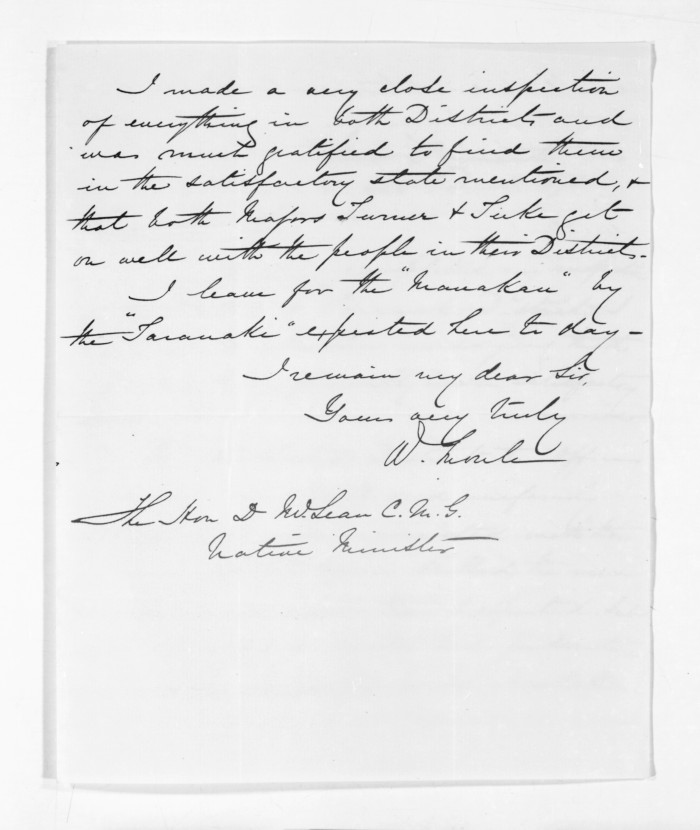 I made a very close inspection
of everything in both Districts and
was much gratified to find them
in the satisfactory state mentioned, &
that both Majors Turner & Tuke get
on well with the people in their Districts.
I leave for the "Manakau" by
the "Taranaki" expected here to day —
I remain my dear Sir,
Yours very truly
W. Moule
The Hon D McLean C.M.G.
Native Minister